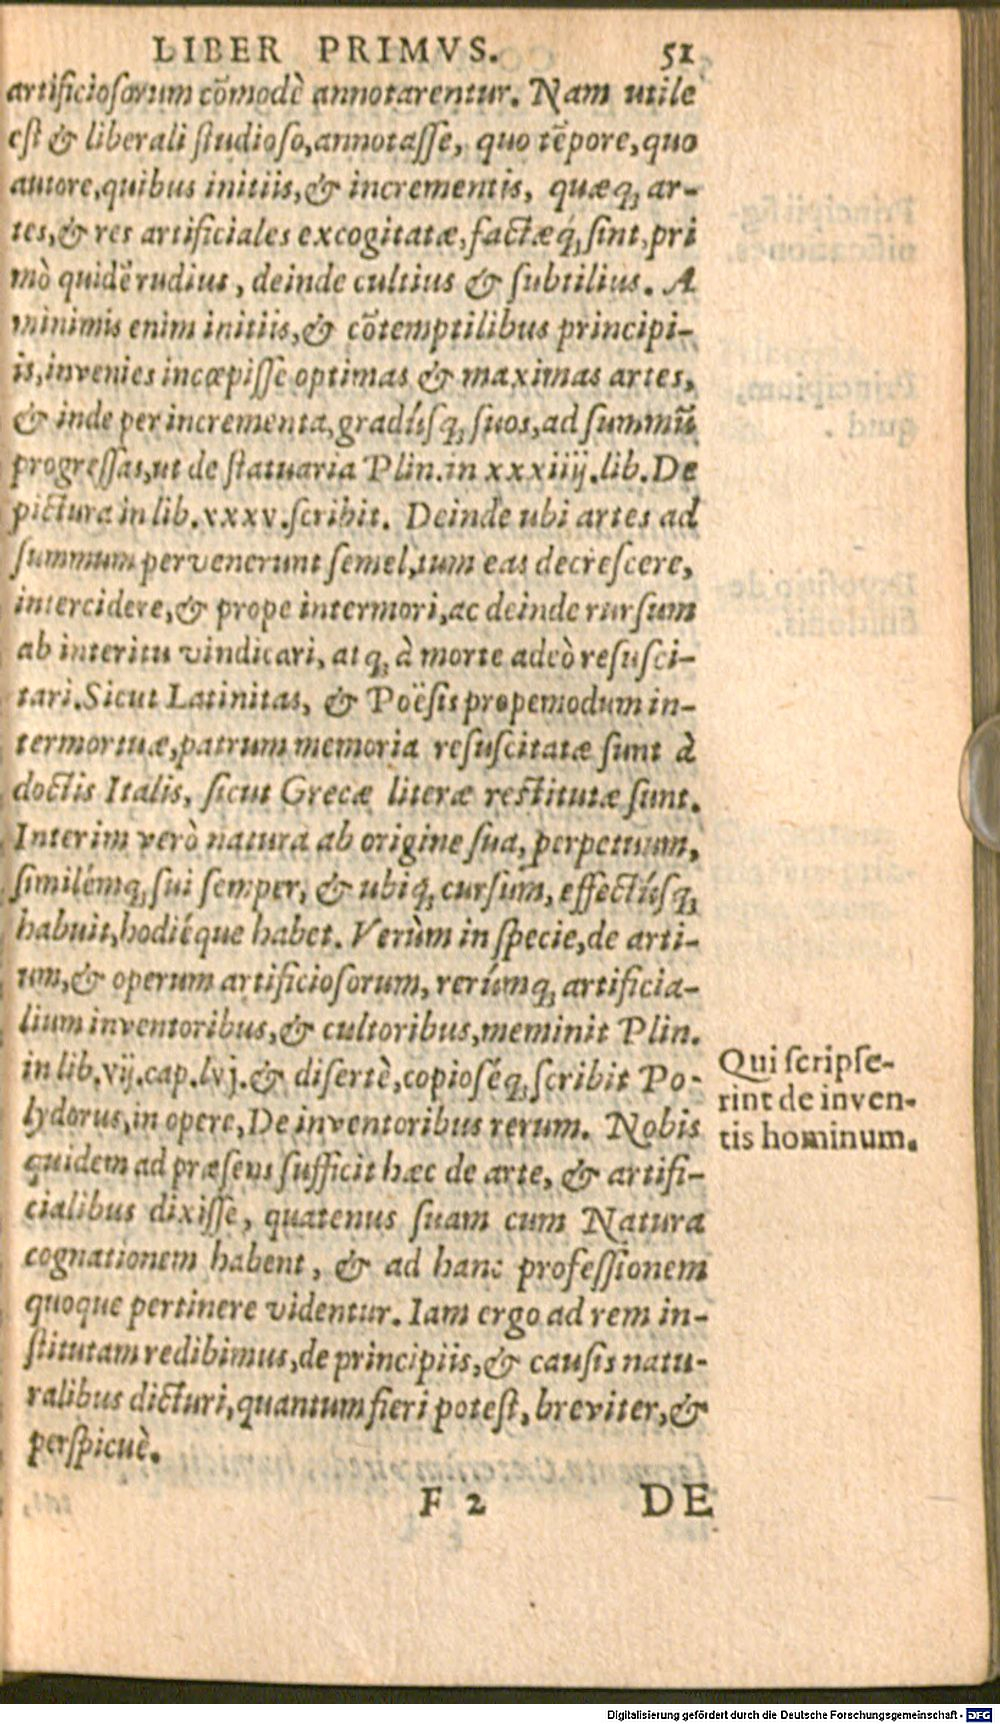 LIBER PRIMVS. 51
artificiosorum cōmodè annotarentur. Nam utile
est & liberali studioso, annotasse, quo tēpore, quo
autore, quibus initiis, & incrementis, quæq; ar-
tes, & res artificiales excogitatæ, factæq́; sint, pri
mò quidē rudius, deinde cultius & subtilius. A
minimis enim initiis, & cōtemptilibus principi-
is, invenies incœpisse optimas & maximas artes,
& inde per incrementa, gradúsq; suos, ad summū
progressas, ut de statuaria Plin. in xxxiiij. lib. De
pictura in lib. xxxv. scribit. Deinde ubi artes ad
summum pervenerunt semel, tum eas decrescere,
intercidere, & prope intermori, ac deinde rursum
ab interitu vindicari, atq; à morte adeò resusci-
tari. Sicut Latinitas, & Poësis propemodum in-
termortuæ, patrum memoria resuscitatæ sunt à
doctis Italis, sicut Grecæ literæ restitutæ sunt.
Interim verò natura ab origine sua, perpetuum,
similémq; sui semper, & ubiq; cursum, effectúsq;
habuit, hodiéque habet. Verùm in specie, de arti-
um, & operum artificiosorum, rerúmq; artificia-
lium inventoribus, & cultoribus, meminit Plin.
in lib. vij. cap. lvj. & disertè, copioséq; scribit Po-
lydorus, in opere, De inventoribus rerum. Nobis
quidem ad præsens sufficit hæc de arte, & artifi-
cialibus dixisse, quatenus suam cum Natura
cognationem habent, & ad hanc professionem
quoque pertinere videntur. Iam ergo ad rem in-
stitutam redibimus, de principiis, & causis natu-
ralibus dicturi, quantum fieri potest, breviter, &
perspicuè.
F 2 DE
Qui scripse-
rint de inven-
tis hominum.
Digitalisierung gefördert durch die Deutsche Forschungsgemeinschaft - DFG